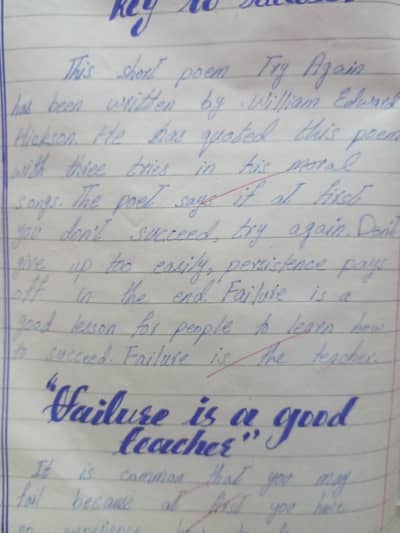 Key to success
This short poem Try Again
has been written by William Edward
Hickson. He has quoted this poem
with three tries in his moral
songs. The poet says if at first
you don't succeed, try again. Don't
give up too easily, persistence pays
off in the end. Failure is a
good lesson for people to learn how
to succeed. Failure is the teacher.
"Failure is a good
teacher"
It is common that you may
fail because at first you have
no experience